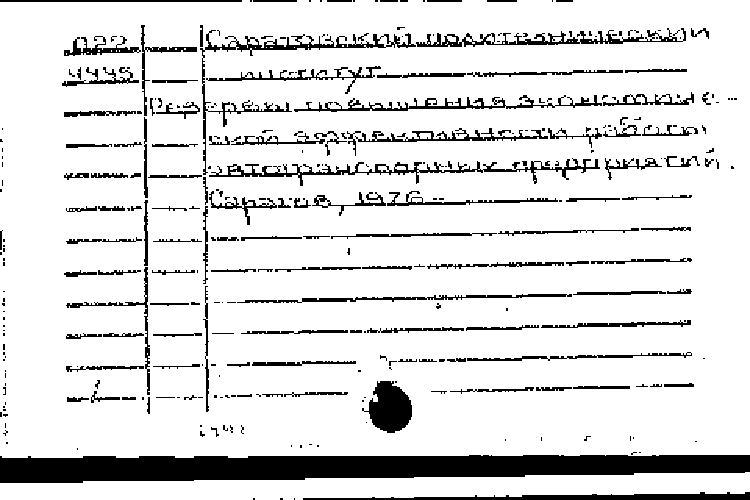 П22 Саратовский политехнический
4445 институт
Резервы повышения экономиче-
ской эффективности работы
автотранспортных предприятий.
Саратов, 1976 -